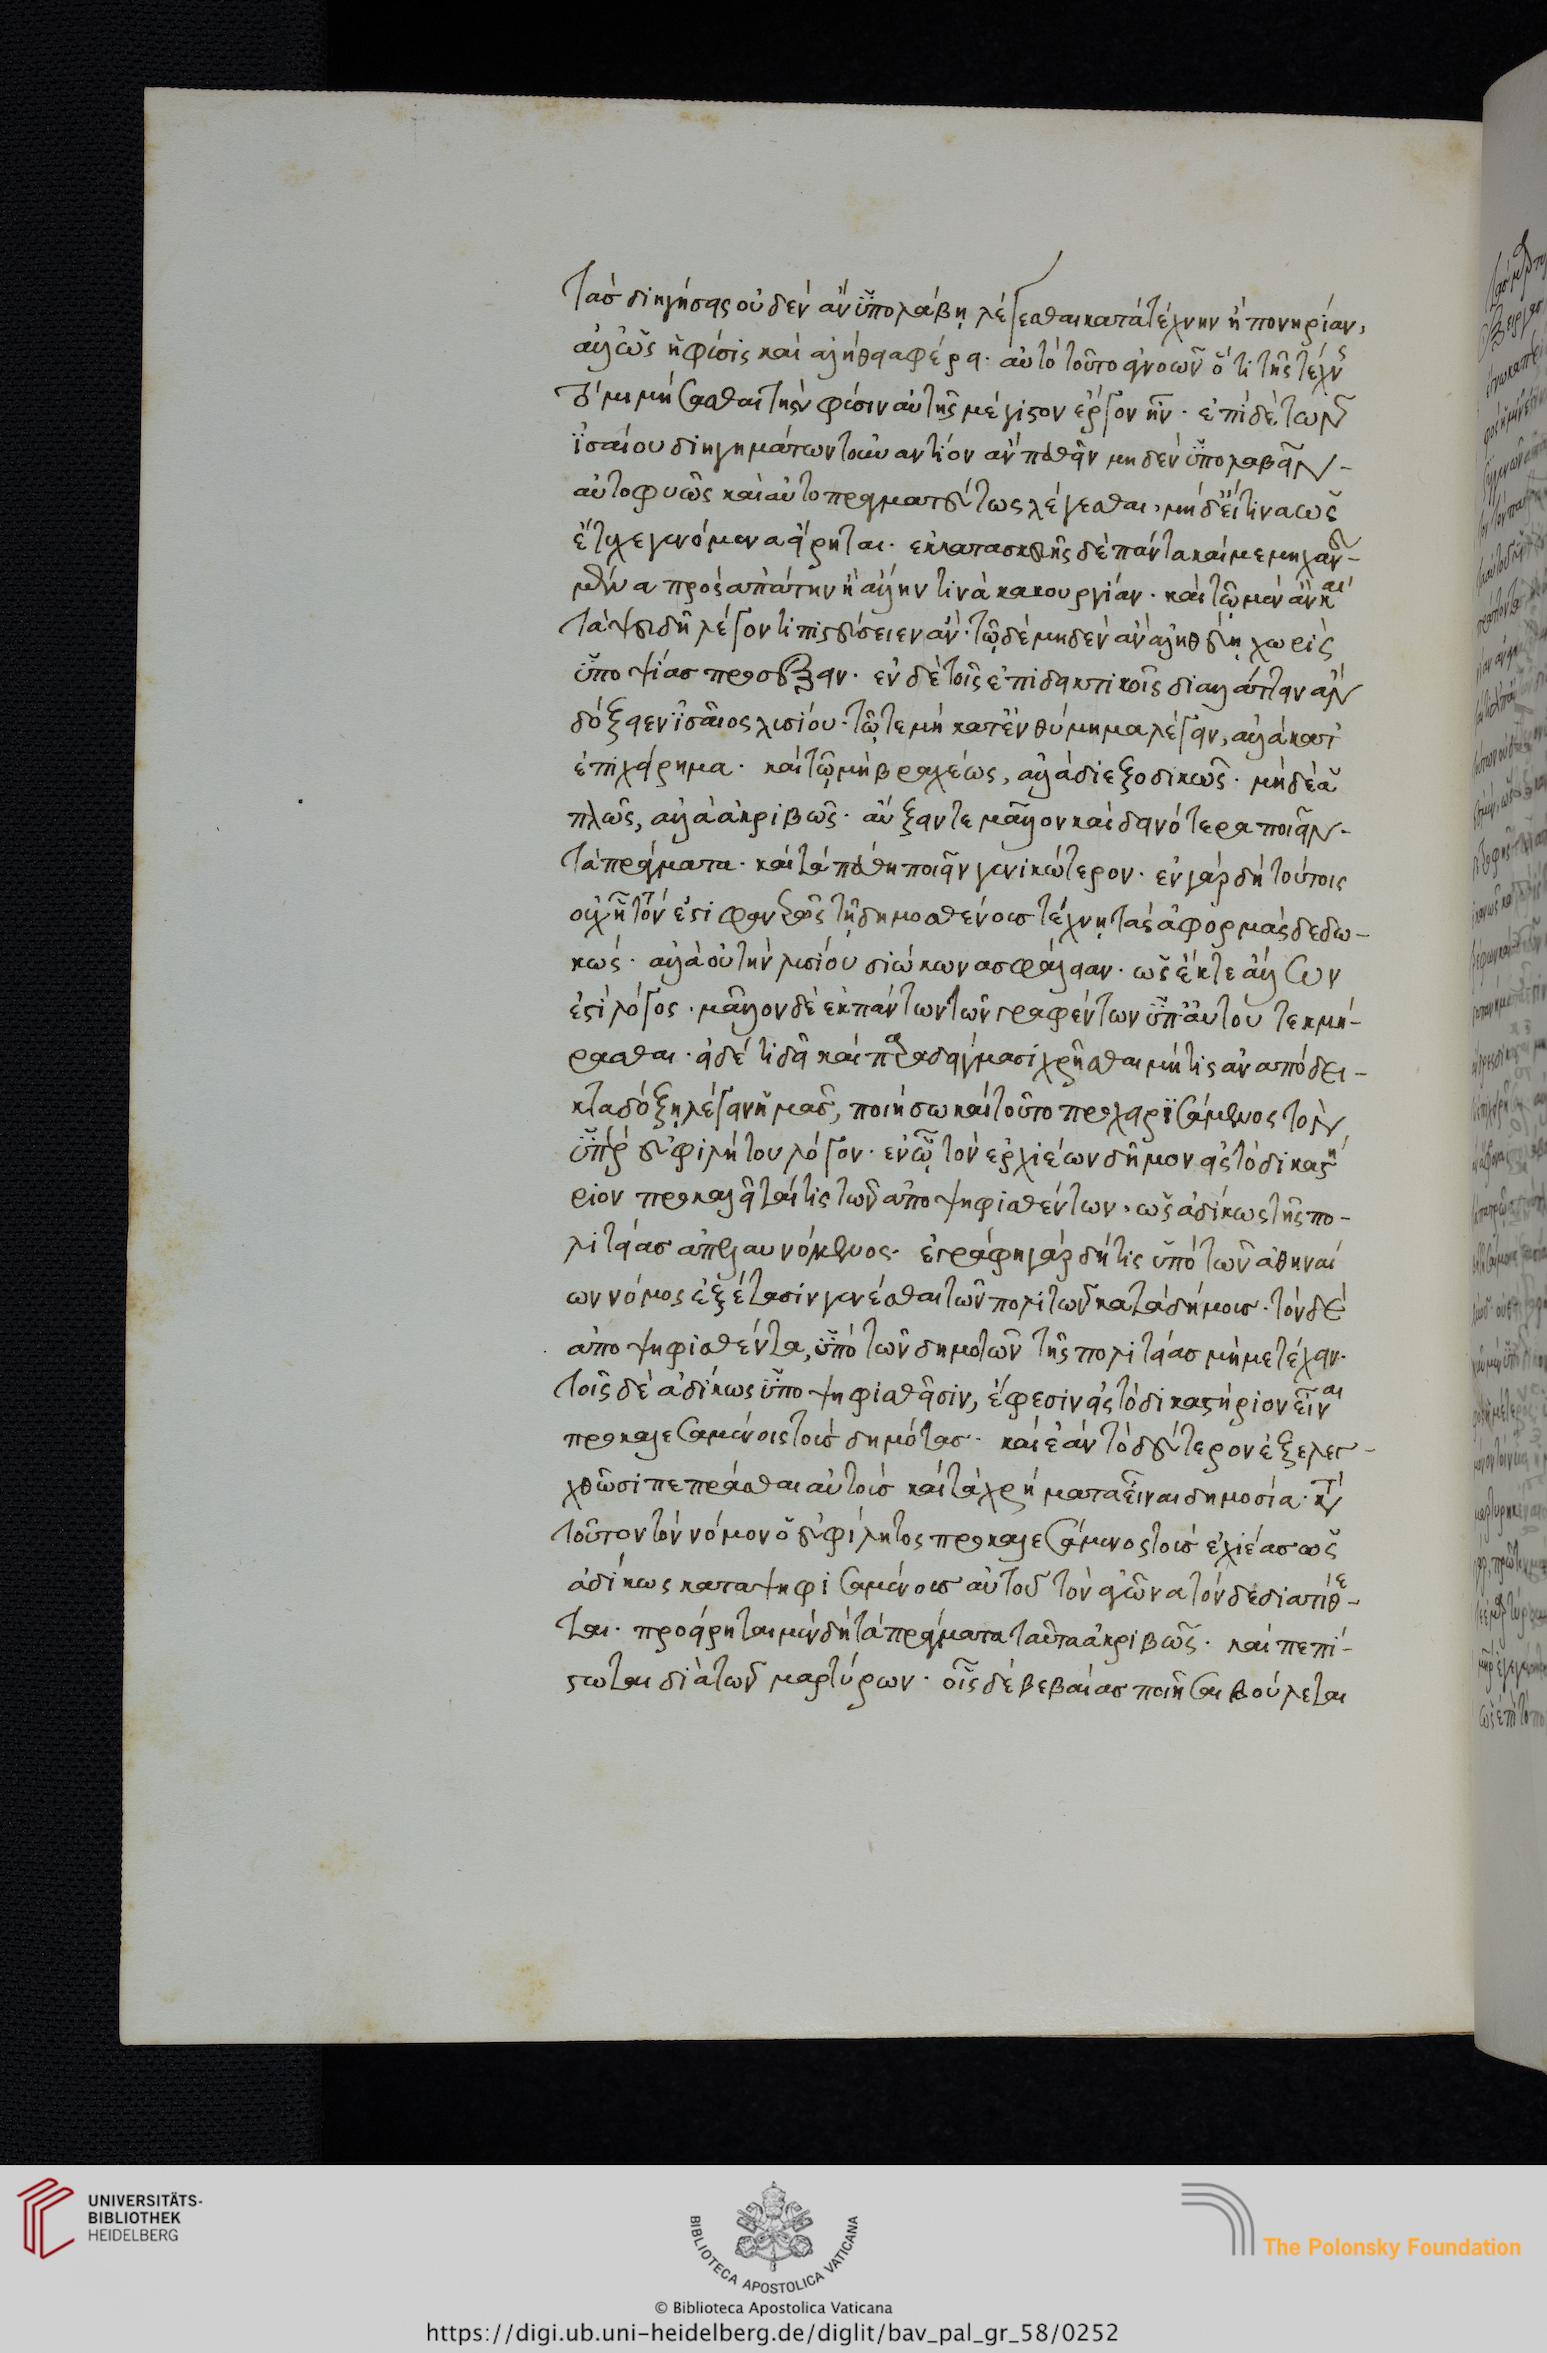 τὰσ διηγήσεις οὐδὲν ἂν ὑπολάβῃ λέγεσθαι κατὰ τέχνην ἢ πονηρίαν,
ἀλλ' ὡς ἡ φύσις καὶ ἀλήθεια φέρει· αὐτὸ τοῦτο ἀγνοῶν ὅτι τῆς τέχνης
τὸ μιμήσασθαι τὴν φύσιν αὐτῆς μέγιστον ἔργον ἦν· ἐπὶ δὲ τῶν
ἰσαίου διηγημάτων τοὐναντίον ἂν πάθειν μηδὲν ὑπολαβεῖν
αὐτοφυῶς καὶ αὐτοπραγματεύτως λέγεσθαι, μηδ' εἴ τινα ὡς
ἔτυχε γινόμενα εἴρηται· ἐκ κατασκευῆς δὲ πάντα καὶ μεμηχανη-
μένα πρὸς ἀπάτην ἢ ἄλλην τινὰ κακουργίαν· καὶ τῷ μὲν ἂν καὶ
τὰ ψευδῆ λέγοντι πιστεύσειεν ἄν· τῷ δὲ μηδὲν ἂν ἀληθεύῃ χωρὶς
ὑποψίασ προσέξειν· ἐν δὲ τοῖς ἐπιδεικτικοῖς διαλλάττειν ἂν
δόξειεν ἰσαῖος λυσίου· τῷ τε μὴ κατ' ἐνθύμημα λέγειν, ἀλλὰ κατ'
ἐπιχείρημα· καὶ τῷ μὴ βραχέως, ἀλλὰ διεξοδικῶς· μηδὲ ἁ
πλῶς, ἀλλὰ ἀκριβῶς· αὔξειν τε μᾶλλον καὶ δεινότερα ποιεῖν
τὰ πράγματα· καὶ τὰ πάθη ποιεῖν γενικώτερον· ἐν γὰρ δὴ τούτοις
οὐχ ἧττόν ἐστι φανερὸς τῇ δημοσθένουσ τέχνῃ τὰς ἀφορμὰς δεδω-
κώς· ἀλλὰ οὐ τὴν λυσίου διώκων ἀσφάλειαν· ὡς ἔκ τε ἄλλων
ἐστὶ λόγος· μᾶλλον δὲ ἐκ πάντων τῶν γραφέντων ὑπ' αὐτοῦ τεκμή-
ρασθαι· εἰ δέ τι δεῖ καὶ παραδείγμασι χρῆσθαι μή τις ἀναπόδει-
κτα δόξῃ λέγειν ἡμᾶς, ποιήσω καὶ τοῦτο προχειρισάμενος τὸν
ὑπὲρ εὐφιλήτου λόγον· ἐν ᾧ τὸν ἐρχιέων δῆμον εἰς τὸ δικαστή
ριον προκαλεῖταί τις τῶν ἀποψηφισθέντων, ὡς ἀδίκως τῆς πο-
λιτείασ ἀπελαυνόμενος· ἐγράφη γὰρ δή τις ὑπὸ τῶν ἀθηναί
ων νόμος ἐξέτασιν γενέσθαι τῶν πολιτῶν κατὰ δήμουσ· τὸν δὲ
ἀποψηφισθέντα, ὑπὸ τῶν δημοτῶν τῆς πολιτείασ μὴ μετέχειν·
τοῖς δὲ ἀδίκως ὑποψηφισθεῖσιν, ἔφεσιν εἰς τὸ δικαστήριον εἶναι
προκαλεσαμένοις τοὺσ δημότασ· καὶ ἐὰν τὸ δεύτερον ἐξελεγ-
χθῶσι πεπρᾶσθαι αὐτοὺσ καὶ τὰ χρήματα εἶναι δημοσία· κατὰ
τοῦτον τὸν νόμον ὁ εὐφίλητος προκαλεσάμενος τοὺσ ἐρχιέασ ὡς
ἀδίκως καταψηφισαμένουσ αὐτοῦ τὸν ἀγῶνα τόνδε διατίθε-
ται· προείρηται μὲν δὴ τὰ πράγματα ταῦτα ἀκριβῶς· καὶ πεπί-
στωται διὰ τῶν μαρτύρων· οἷς δὲ βεβαίασ ποιῆσαι βούλεται
UNIVERSITÄTS-
BIBLIOTHEK
HEIDELBERG
BIBLIOTECA APOSTOLICA VATICANA
© Biblioteca Apostolica Vaticana
The Polonsky Foundation
https://digi.ub.uni-heidelberg.de/diglit/bav_pal_gr_58/0252